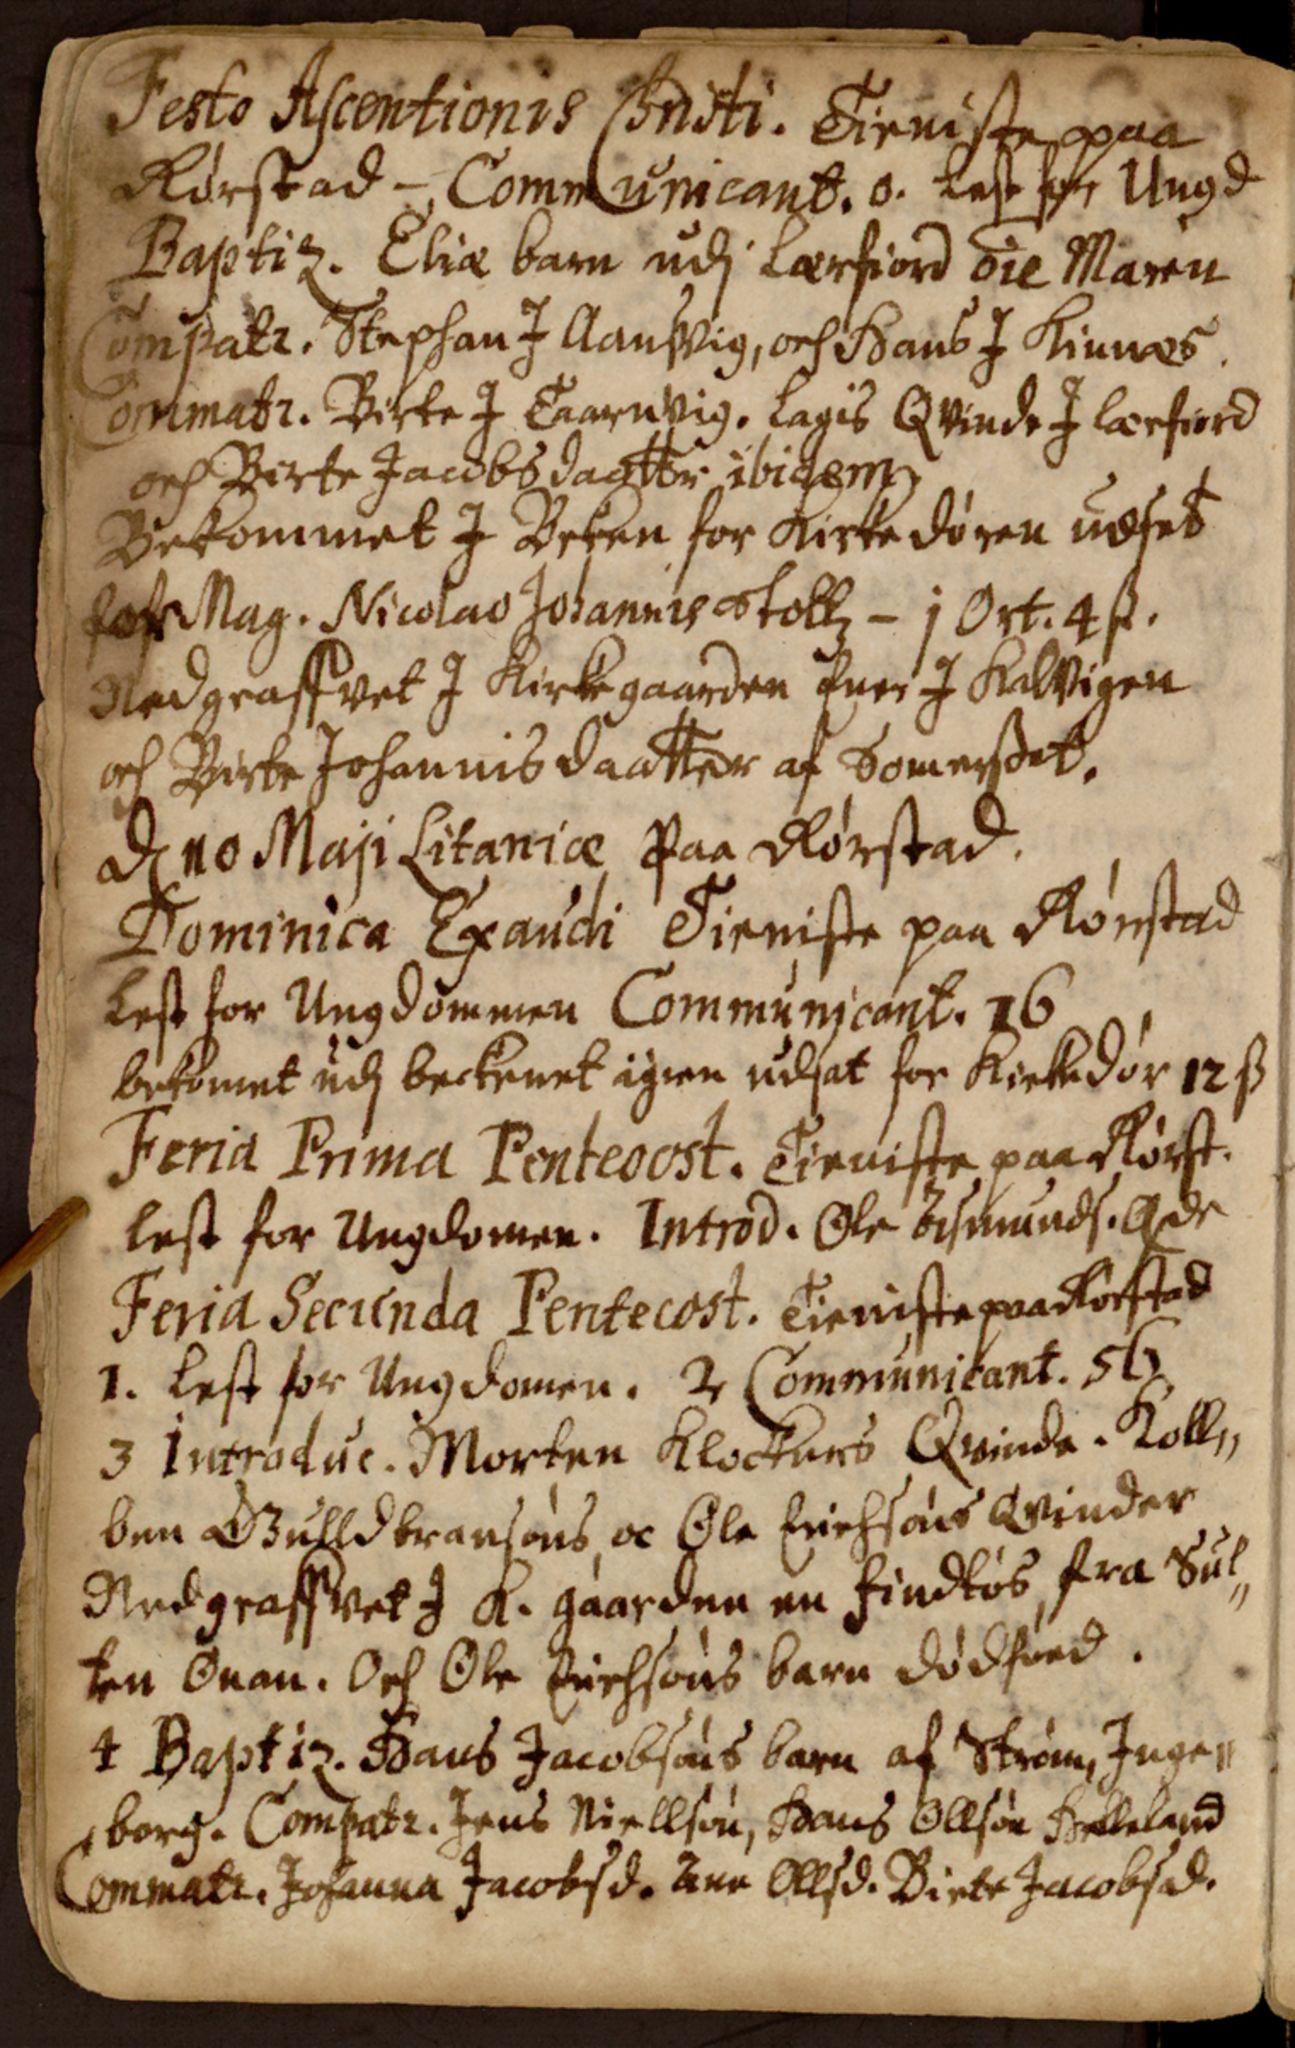 Festo Ascentionis Christi. Tieniste paa
Rørstad – Communicant. 0. Lest for Ungd
Baptiz. Eliæ barn udj Lærfiord die Maren
Compatr. Stephan J Aansvig, och Hans J Kinnæs.
Commatr. Birte J Taarnvig. Lagis Qvinde J Lærfiord
och Birte Jacobsdaatter ibidem
Bekommet J Beken for Kirke døren udset
for Mag. Nicolao Johannis Stollz – j Ort. 4 ß.
Nedgraffvet J Kirkegaarden J Kalvigen
och Birte Johannisdaatter af Somerset.
D 10 Maji Litaniæ paa Rørstad.
Dominica Exaudi Tieniste paa Rørstad
Lest for Ungdommen Communicant. 16
bekomet udj beckenet igien udsat for Kirkedør 12 ß
Feria Prima Pentecost. Tieniste paa Rørst.
lest for Ungdomen. Introd. Ole Asmunds. Qde
Feria Secunda Pentecost. Tieniste paa Rørstad
1. Lest for Ungdomen. 2 Communicant. 56
3 Introduc. Morten Klockers Qvinde. Koll„
ben Gulldbransøns oc Ole Erichsøns Qvinder
Nedgraffvet J K. gaarden en findtøs fra Sul„
ten Onan. Och Ole Erichsøns barn dødføed.
4 Baptiz. Hans Jacobsøns barn af Strøm, Inge„
borg. Compatr. Jens Niellsøn, Hans Ollsøn Helleland
Commatr. Johanna Jacobsd. Ane Ollsd. Birte Jacobsd.